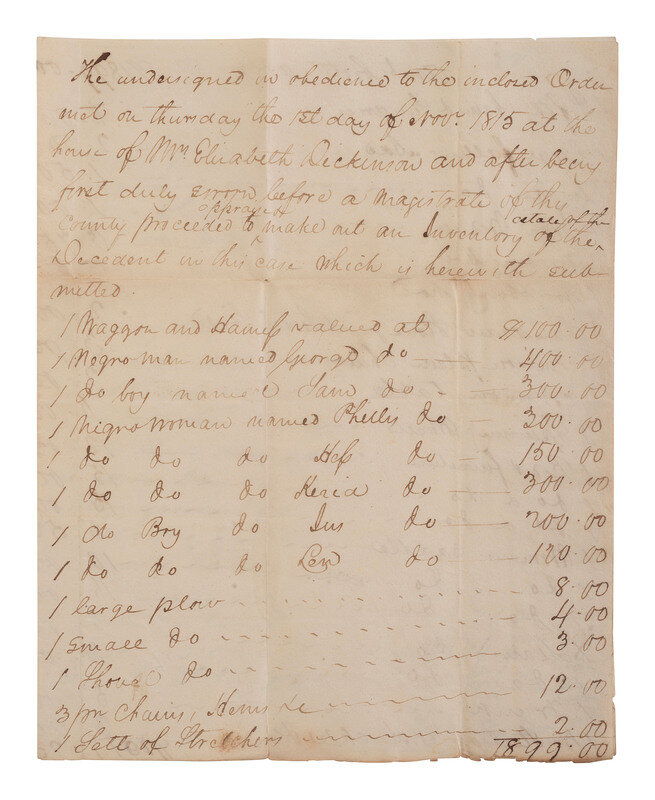 The undersigned in obedience to the inclosed Order
met on thursday the 1st day of Novr. 1815 at the
house of Mrs Elizabeth Dickinson and after being
first duly sworn before a magistrate of this
County proceeded to appraise & make out an Inventory of the estate of the
Decedent in this case which is herewith sub-
mitted.
1 Waggon and Harness valued at $100.00
1 Negro man named George do — 400.00
1 do boy named Sam do — 300.00
1 Negro woman named Phellis do — 300.00
1 do do do Hess do — 150.00
1 do do do Kezia do — 300.00
1 do Boy do do — 200.00
1 do do do Lew do — 120.00
1 large plow 8.00
1 small do 4.00
1 Shovel do 3.00
3 pr. Chains, Hems &c 12.00
1 Sett of Stretchers 2.00
1899.00